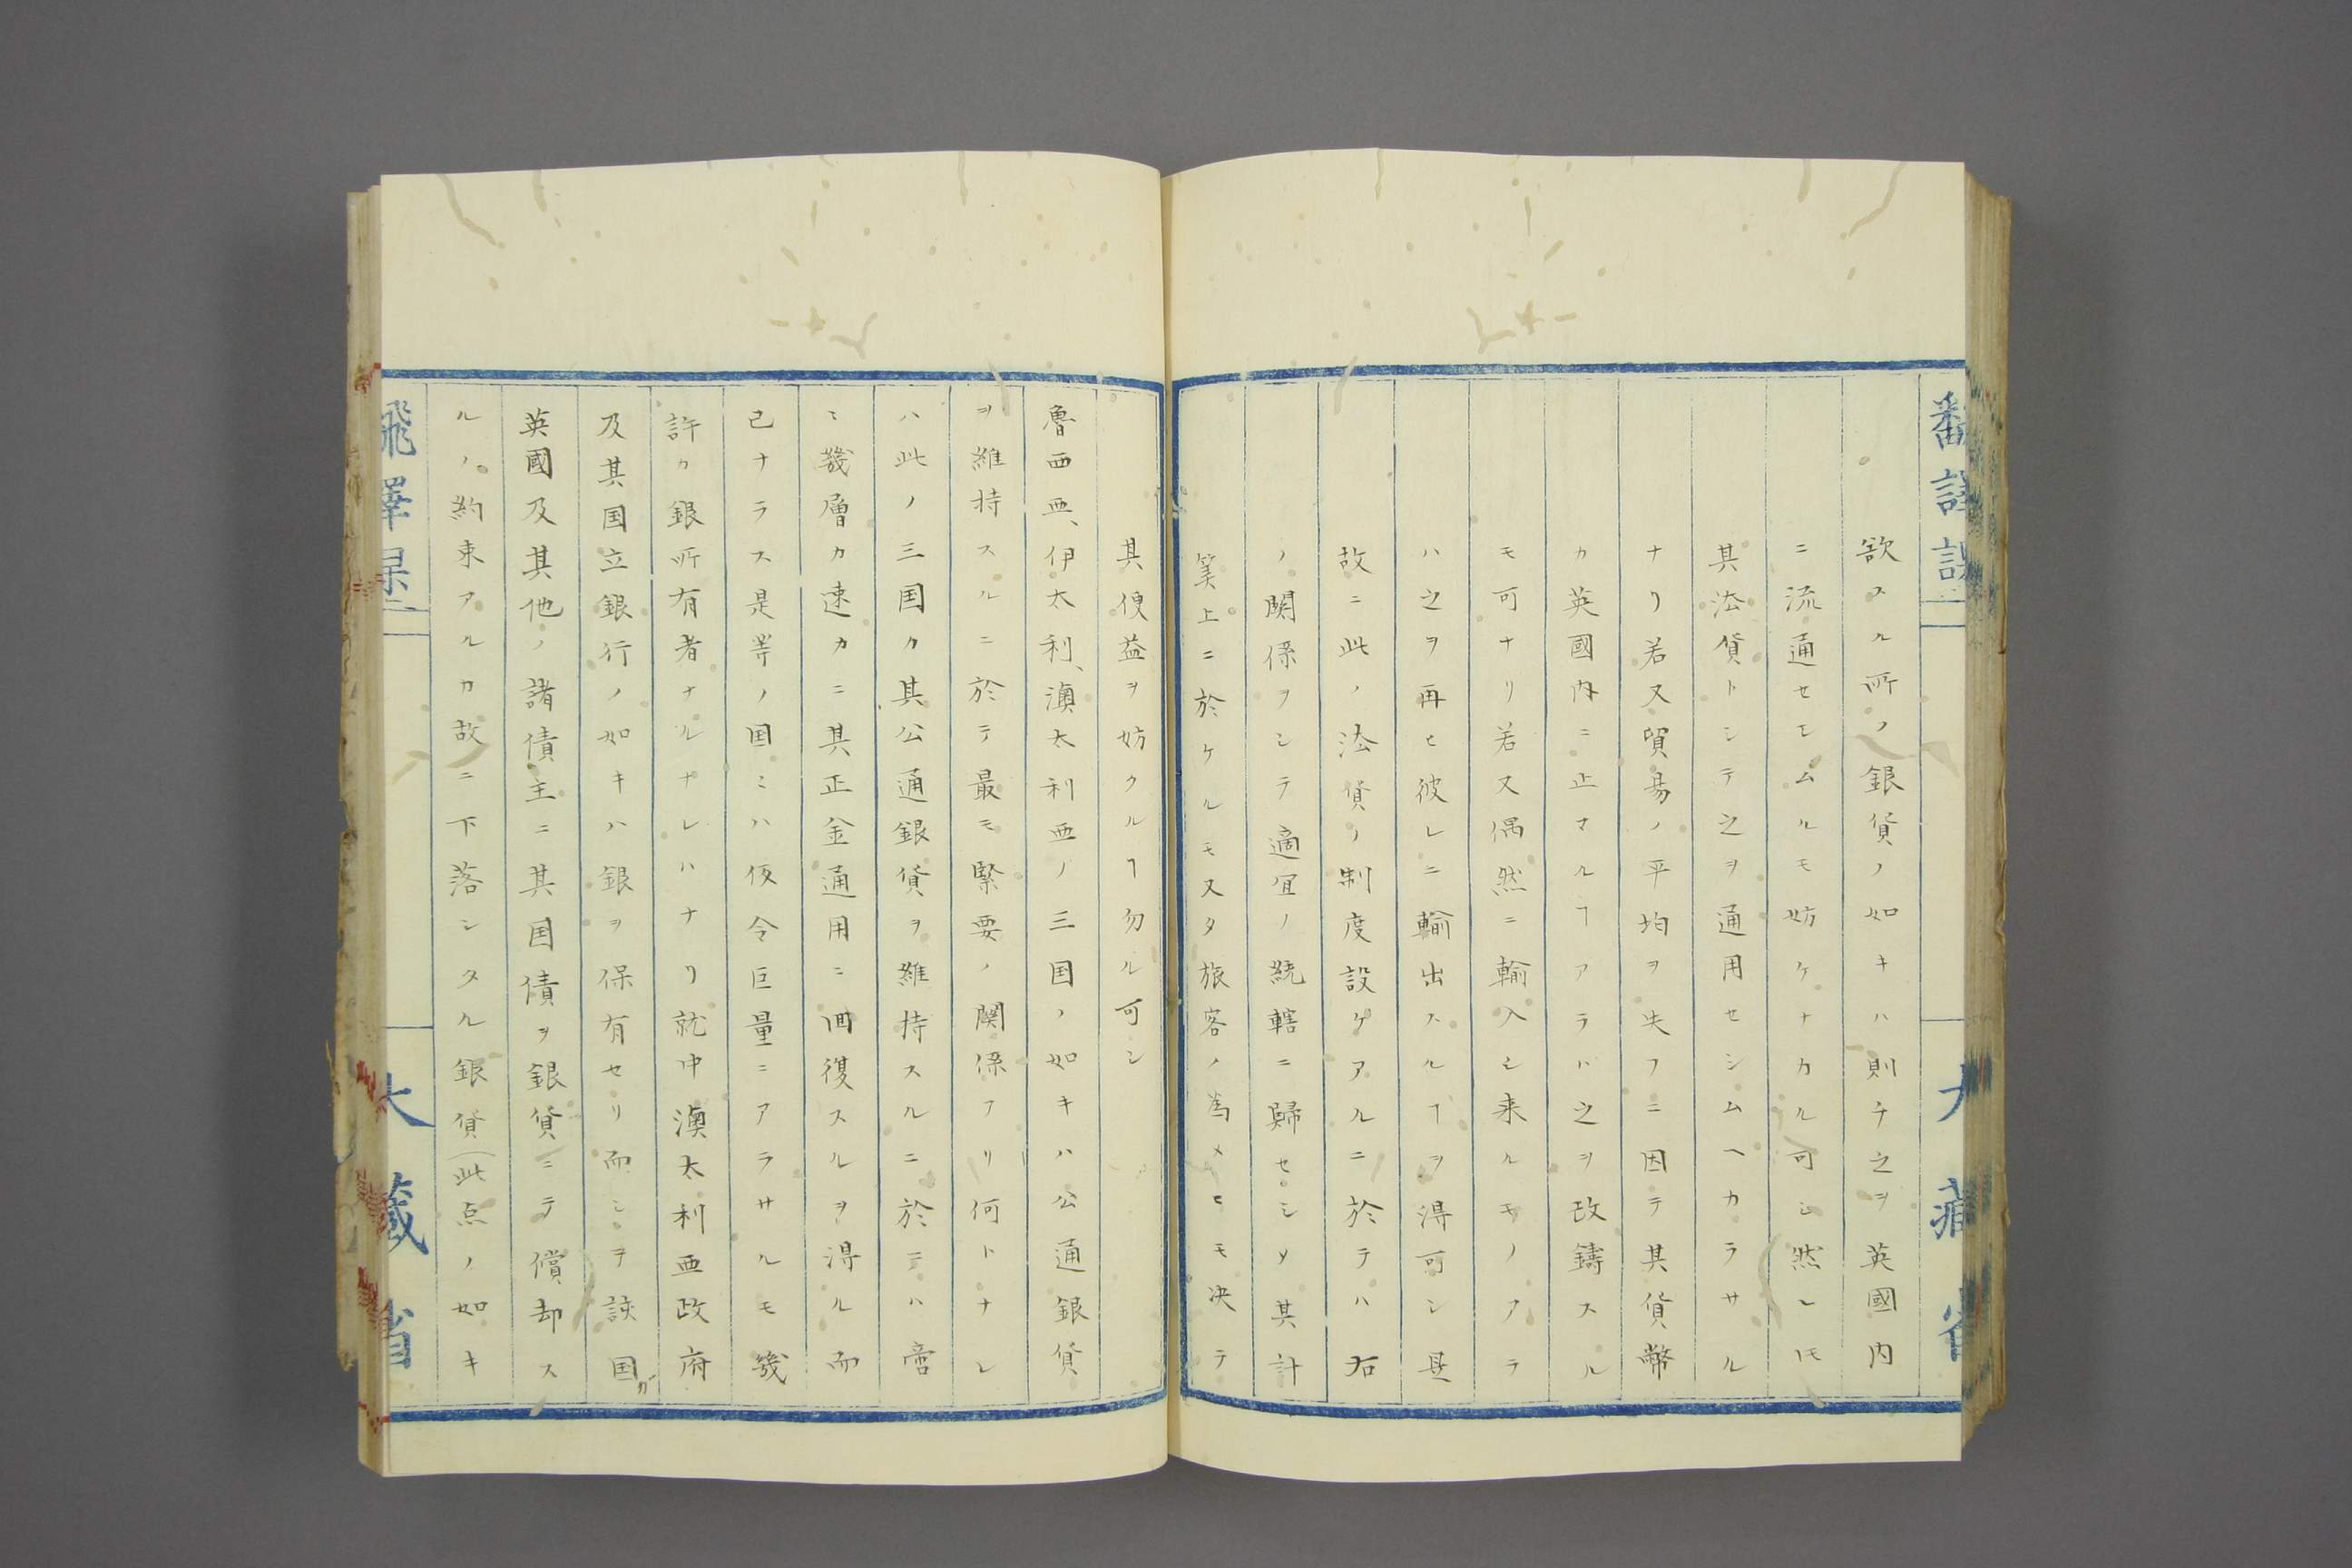 欲スル所ノ銀貨ノ如キハ則チ之ヲ英國内
ニ流通セシムルモ妨ケナカル可シ然レ𪜈
其法貨トシテ之ヲ通用セシムヘカラサル
ナリ若又貿易ノ平均ヲ失フニ因テ其貨幣
カ英國内ニ止マルヿアラハ之ヲ改鋳スル
モ可ナリ若又偶然ニ輸入シ来ルモノアラ
ハ之ヲ再ヒ彼レニ輸出スルヿヲ得可シ是
故ニ此ノ法貨ノ制度設ケアルニ於テハ右
ノ関係ヲシテ適宜ノ統轄ニ歸セシメ其計
筭上ニ於ケルモ又タ旅客ノ為メニモ决テ
其便益ヲ妨クルヿ勿ル可シ
魯西亜、伊太利、澳太利亜ノ三国ノ如キハ公通銀貨
ヲ維持スルニ於テ最モ緊要ノ関係アリ何トナレ
ハ此ノ三国カ其公通銀貨ヲ維持スルニ於テハ啻
ミ幾層カ速カニ其正金通用ニ回復スルヲ得ル而
已ナラス是等ノ国ミハ仮令巨量ニアラサルモ幾
許カ銀所有者ナルナレハナリ就中澳太利亜政府
及其国立銀行ノ如キハ銀ヲ保有セリ而シヲ該国ガ
英國及其他ノ諸債主ニ其国債ヲ銀貨ニテ償却ス
ルノ約束アルカ故ニ下落シタル銀貨(此点ノ如キ
大藏省